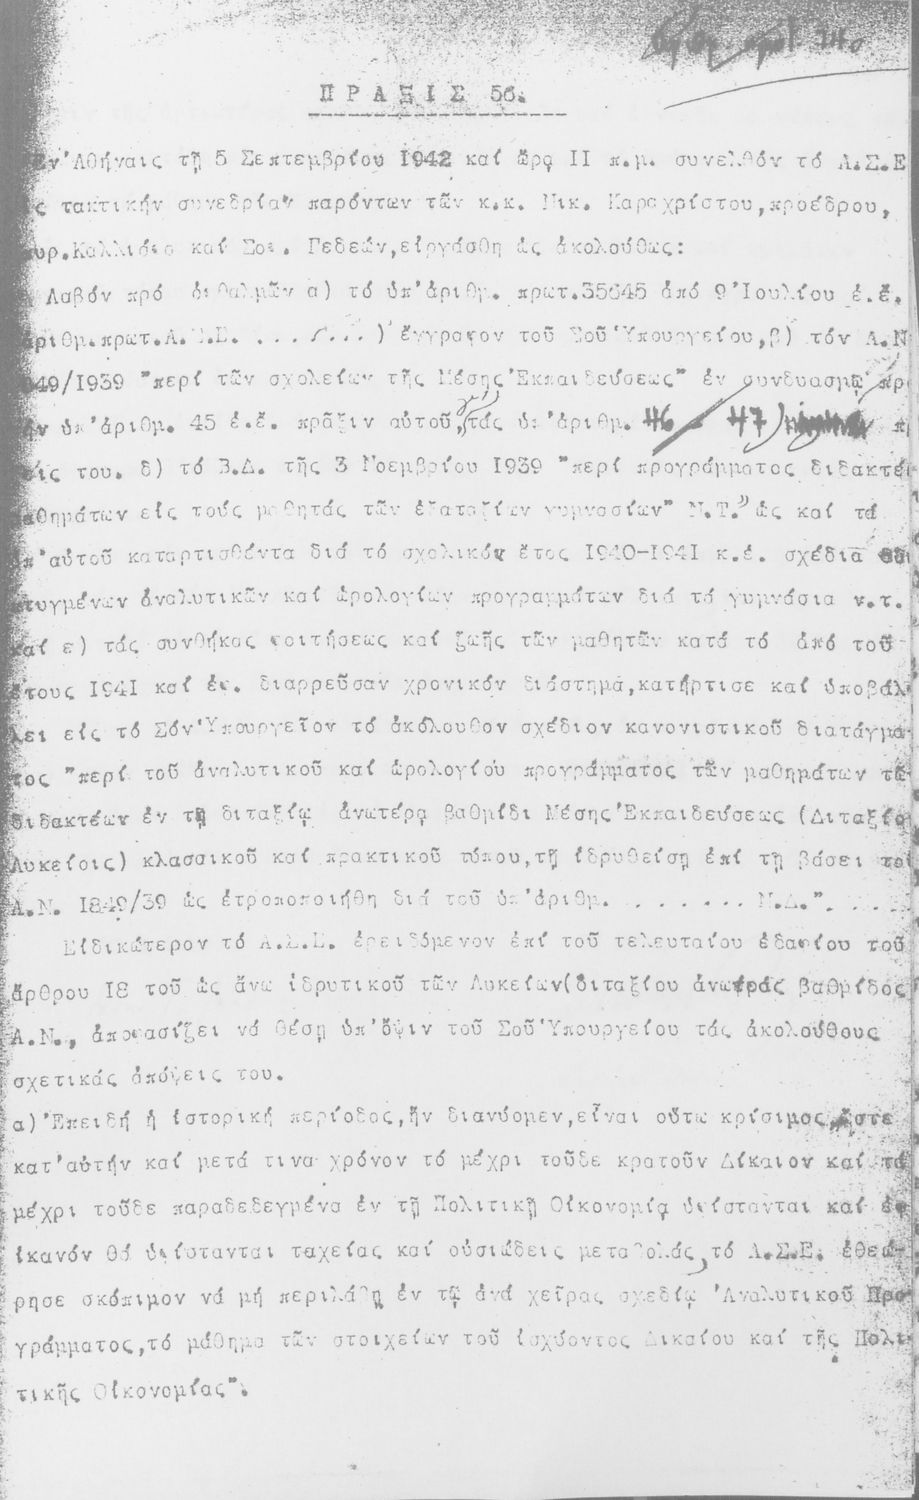 ΠΡΑΞΙΣ 56.
Ἐν Ἀθήναις τῇ 5 Σεπτεμβρίου 1942 καί ὥρᾳ II π.μ. συνελθόν τό Α.Σ.Ε
ς τακτικήν συνεδρίαν παρόντων τῶν κ.κ. Νικ. Καραχρίστου, προέδρου,
υρ. Καλλιάφα καί Σοφ. Γεδεών, εἰργάσθη ὡς ἀκολούθως:
Λαβόν πρό ὀφθαλμῶν α) τό ὑπ' ἀριθμ. πρωτ. 35645 ἀπό 9 Ἰουλίου ἐ.ἔ.
ἀριθμ. πρωτ. Α.Σ.Ε. ... /...) ἔγγραφον τοῦ Σοῦ Ὑπουργείου, β) τόν Α.Ν
849/1939 "περί τῶν σχολείων τῆς Μέσης Ἐκπαιδεύσεως" ἐν συνδυασμῷ πρ
όν ὑπ' ἀριθμ. 45 ἐ.ἔ. πρᾶξιν αὐτοῦ, γ) τάς ὑπ' ἀριθμ. 46 - 47 π
εις του. δ) τό Β.Δ. τῆς 3 Νοεμβρίου 1939 "περί προγράμματος διδακτέ
αθημάτων εἰς τούς μαθητάς τῶν ἑξαταξίων γυμνασίων" Ν.Τ. ὡς καί τά
ὑπ' αὐτοῦ καταρτισθέντα διά τό σχολικόν ἔτος 1940-1941 κ.ἑ. σχέδια
πτυγμένων ἀναλυτικῶν καί ὡρολογίων προγραμμάτων διά τά γυμνάσια ν.τ.
καί ε) τάς συνθήκας φοιτήσεως καί ζωῆς τῶν μαθητῶν κατά τό ἀπό τοῦ
ἔτους 1941 καί ἐφ. διαρρεῦσαν χρονικόν διάστημα, κατήρτισε καί ὑποβάλ
λει εἰς τό Σόν Ὑπουργεῖον τό ἀκόλουθον σχέδιον κανονιστικοῦ διατάγμα
τος "περί τοῦ ἀναλυτικοῦ καί ὡρολογίου προγράμματος τῶν μαθημάτων τῶ
διδακτέων ἐν τῇ διταξίῳ ἀνωτέρᾳ βαθμίδι Μέσης Ἐκπαιδεύσεως (Διταξίο
Λυκείοις) κλασσικοῦ καί πρακτικοῦ τύπου, τῇ ἱδρυθείσῃ ἐπί τῇ βάσει το
Α.Ν. 1849/39 ὡς ἐτροποποιήθη διά τοῦ ὑπ' ἀριθμ. ....... Ν.Δ.".
Εἰδικώτερον τό Α.Σ.Ε. ἐρειδόμενον ἐπί τοῦ τελευταίου ἐδαφίου τοῦ
ἄρθρου 18 τοῦ ὡς ἄνω ἱδρυτικοῦ τῶν Λυκείων (διταξίου ἀνωτέρας βαθμίδος
Α.Ν., ἀποφασίζει νά θέσῃ ὑπ' ὄψιν τοῦ Σοῦ Ὑπουργείου τάς ἀκολούθους
σχετικάς ἀπόψεις του.
α) Ἐπειδή ἡ ἱστορική περίοδος, ἥν διανύομεν, εἶναι οὕτω κρίσιμος, ὥστε
κατ' αὐτήν καί μετά τινα χρόνον τό μέχρι τοῦδε κρατοῦν Δίκαιον καί τά
μέχρι τοῦδε παραδεδεγμένα ἐν τῇ Πολιτικῇ Οἰκονομίᾳ ὑφίστανται καί ἐφ
ἱκανόν θά ὑφίστανται ταχείας καί οὐσιώδεις μεταβολάς, τό Α.Σ.Ε. ἐθεώ-
ρησε σκόπιμον νά μή περιλάβῃ ἐν τῷ ἀνά χεῖρας σχεδίῳ Ἀναλυτικοῦ Προ
γράμματος, τό μάθημα τῶν στοιχείων τοῦ ἰσχύοντος Δικαίου καί τῆς Πολι
τικῆς Οἰκονομίας".